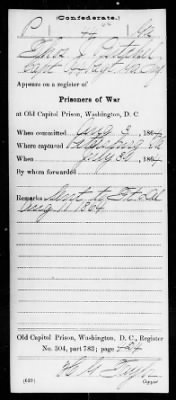 (Confederate.)
P
Capt
Appears on a register of
Prisoners of War
at Old Capitol Prison, Washington, D. C.
When committed Aug 3, 1864
Where captured Petersburg Va
When July 30, 1864
By whom forwarded
Remarks Sent to Ft Del
Aug 11. 1864
Old Capitol Prison, Washington, D. C., Register
No. 304, part 783; page
(639)
Copyist